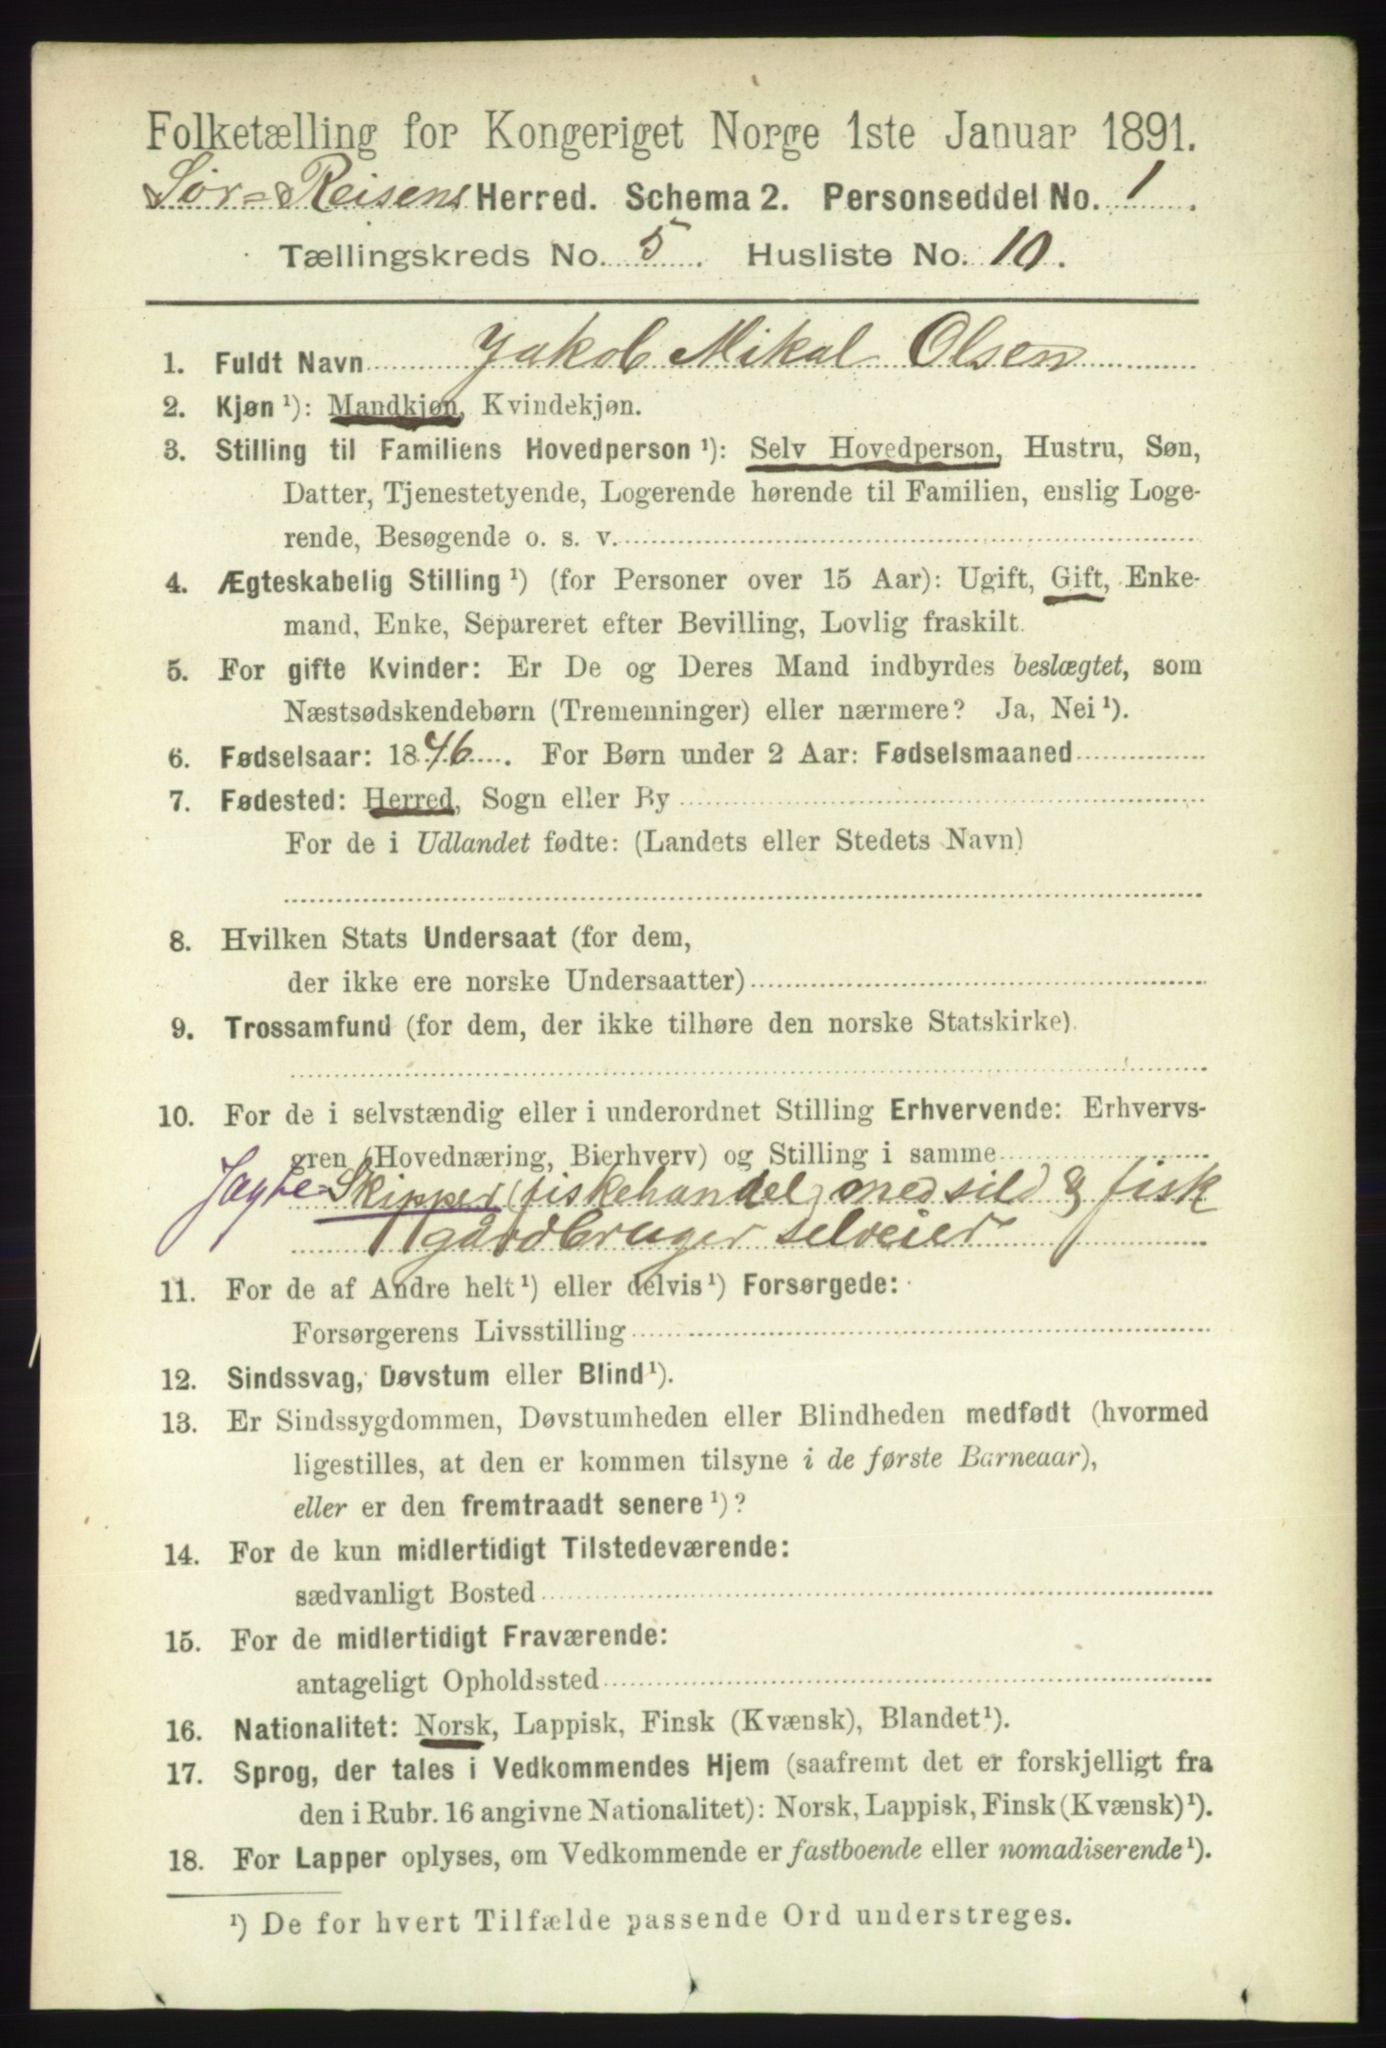 Folketælling for Kongeriget Norge 1ste Januar 1891.
Sør=Reisens Herred. Schema 2. Personseddel No. 1.
Tællingskreds No. 5. Husliste No. 10.
1. Fuldt Navn Jakob Mikal Olsen
2. Kjøn ¹): Mandkjøn, Kvindekjøn.
3. Stilling til Familiens Hovedperson ¹): Selv Hovedperson, Hustru, Søn,
Datter, Tjenestetyende, Logerende hørende til Familien, enslig Loge-
rende, Besøgende o. s. v.
4. Ægteskabelig Stilling ¹) (for Personer over 15 Aar): Ugift, Gift, Enke-
mand, Enke, Separeret efter Bevilling, Lovlig fraskilt.
5. For gifte Kvinder: Er De og Deres Mand indbyrdes beslægtet, som
Næstsødskendebørn (Tremenninger) eller nærmere? Ja, Nei ¹).
6. Fødselsaar: 1846. For Børn under 2 Aar: Fødselsmaaned
7. Fødested: Herred, Sogn eller By
For de i Udlandet fødte: (Landets eller Stedets Navn)
8. Hvilken Stats Undersaat (for dem,
der ikke ere norske Undersaatter)
9. Trossamfund (for dem, der ikke tilhøre den norske Statskirke).
10. For de i selvstændig eller i underordnet Stilling Erhvervende: Erhvervs-
gren (Hovednæring, Bierhverv) og Stilling i samme
Jagte=Skipper (fiskehandel) med sild & fisk
gårdbruger selveier
11. For de af Andre helt ¹) eller delvis ¹) Forsørgede:
Forsørgerens Livsstilling
12. Sindssvag, Døvstum eller Blind ¹).
13. Er Sindssygdommen, Døvstumheden eller Blindheden medfødt (hvormed
ligestilles, at den er kommen tilsyne i de første Barneaar),
eller er den fremtraadt senere ¹)?
14. For de kun midlertidigt Tilstedeværende:
sædvanligt Bosted
15. For de midlertidigt Fraværende:
antageligt Opholdssted
16. Nationalitet: Norsk, Lappisk, Finsk (Kvænsk), Blandet ¹).
17. Sprog, der tales i Vedkommendes Hjem (saafremt det er forskjelligt fra
den i Rubr. 16 angivne Nationalitet): Norsk, Lappisk, Finsk (Kvænsk) ¹).
18. For Lapper oplyses, om Vedkommende er fastboende eller nomadiserende ¹).
¹) De for hvert Tilfælde passende Ord understreges.